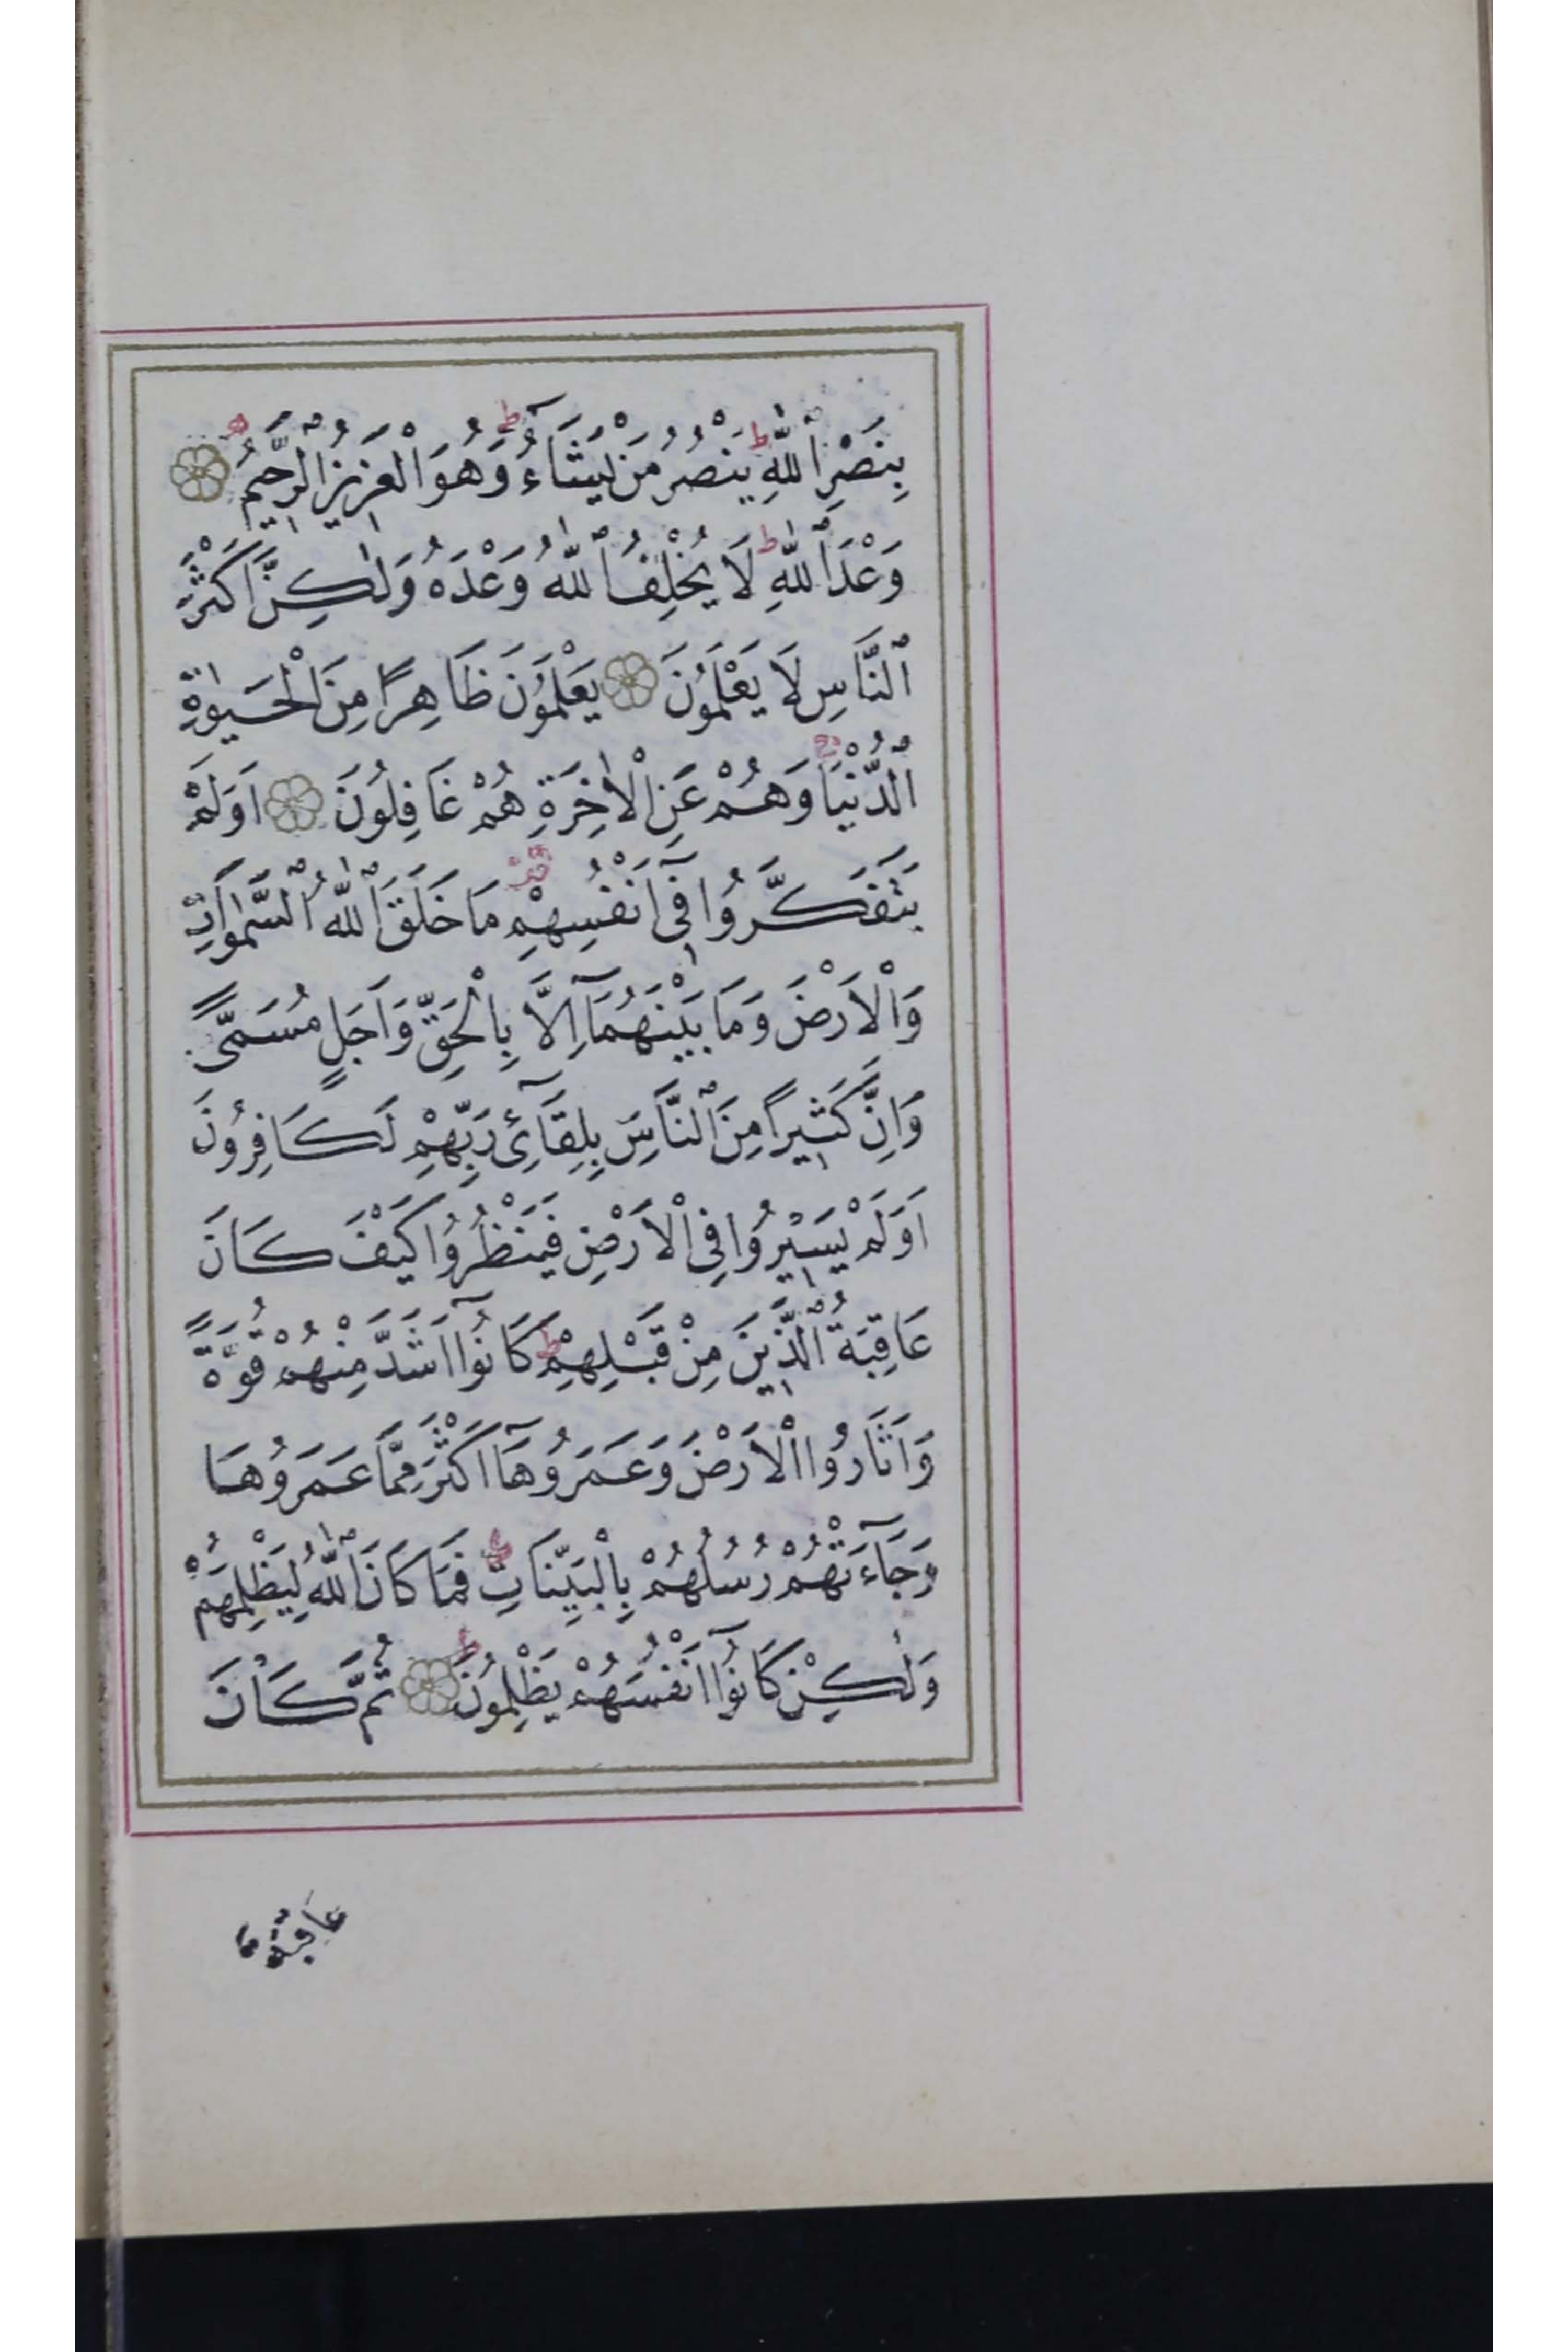 بِنَصْرِ ٱللّٰهِ ۜ ط يَنْصُرُ مَنْ يَشَآءُ ط وَهُوَ الْعَزِيزُ ٱلرَّحِيمُ ۝
وَعْدَ ٱللّٰهِ ط لَا يُخْلِفُ ٱللّٰهُ وَعْدَهُ وَلٰكِنَّ اَكْثَرَ
ٱلنَّاسِ لَا يَعْلَمُونَ ۝ يَعْلَمُونَ ظَاهِرًا مِنَ الْحَيٰوةِ
ٱلدُّنْيَا ۚ وَهُمْ عَنِ الْاٰخِرَةِ هُمْ غَافِلُونَ ۝ اَوَلَمْ
يَتَفَكَّرُوا فِٓى اَنْفُسِهِمْ مَا خَلَقَ ٱللّٰهُ ٱلسَّمٰوَاتِ
وَالْاَرْضَ وَمَا بَيْنَهُمَآ اِلَّا بِالْحَقِّ وَاَجَلٍ مُسَمًّى
وَاِنَّ كَثِيرًا مِنَ ٱلنَّاسِ بِلِقَآئِ رَبِّهِمْ لَكَافِرُونَ
اَوَلَمْ يَسِيرُوا فِى الْاَرْضِ فَيَنْظُرُوا كَيْفَ كَانَ
عَاقِبَةُ ٱلَّذِينَ مِنْ قَبْلِهِمْ ط كَانُوٓا اَشَدَّ مِنْهُمْ قُوَّةً
وَاَثَارُوا الْاَرْضَ وَعَمَرُوهَآ اَكْثَرَ مِمَّا عَمَرُوهَا
وَجَآءَتْهُمْ رُسُلُهُمْ بِالْبَيِّنَاتِ فَمَا كَانَ ٱللّٰهُ لِيَظْلِمَهُمْ
وَلٰكِنْ كَانُوٓا اَنْفُسَهُمْ يَظْلِمُونَ ط ۝ ثُمَّ كَانَ
عَاقِبَةَ